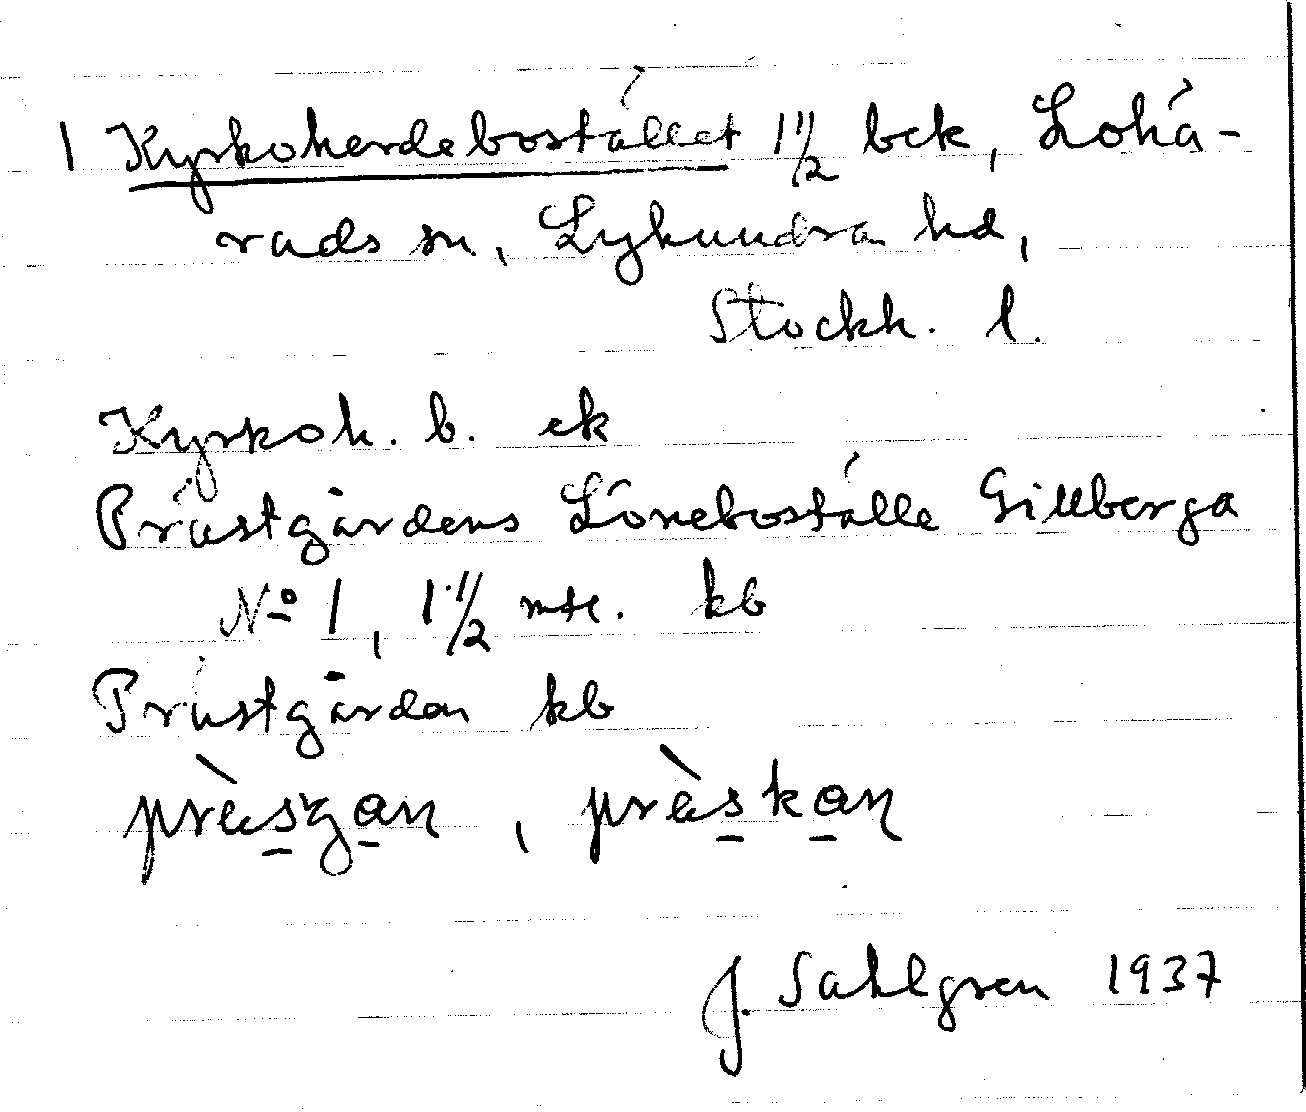 1 Kyrkoherdebostället 1 1/2 bck, Lohä-
rads sn, Lyhundra hd,
Stockh. l.
Kyrkoh. b. ek
Prästgårdens Löneboställe Gillberga
No 1, 1 1/2 mtl. kb
Prästgården kb
præ̀sgan, præ̀skan
J. Sahlgren 1937